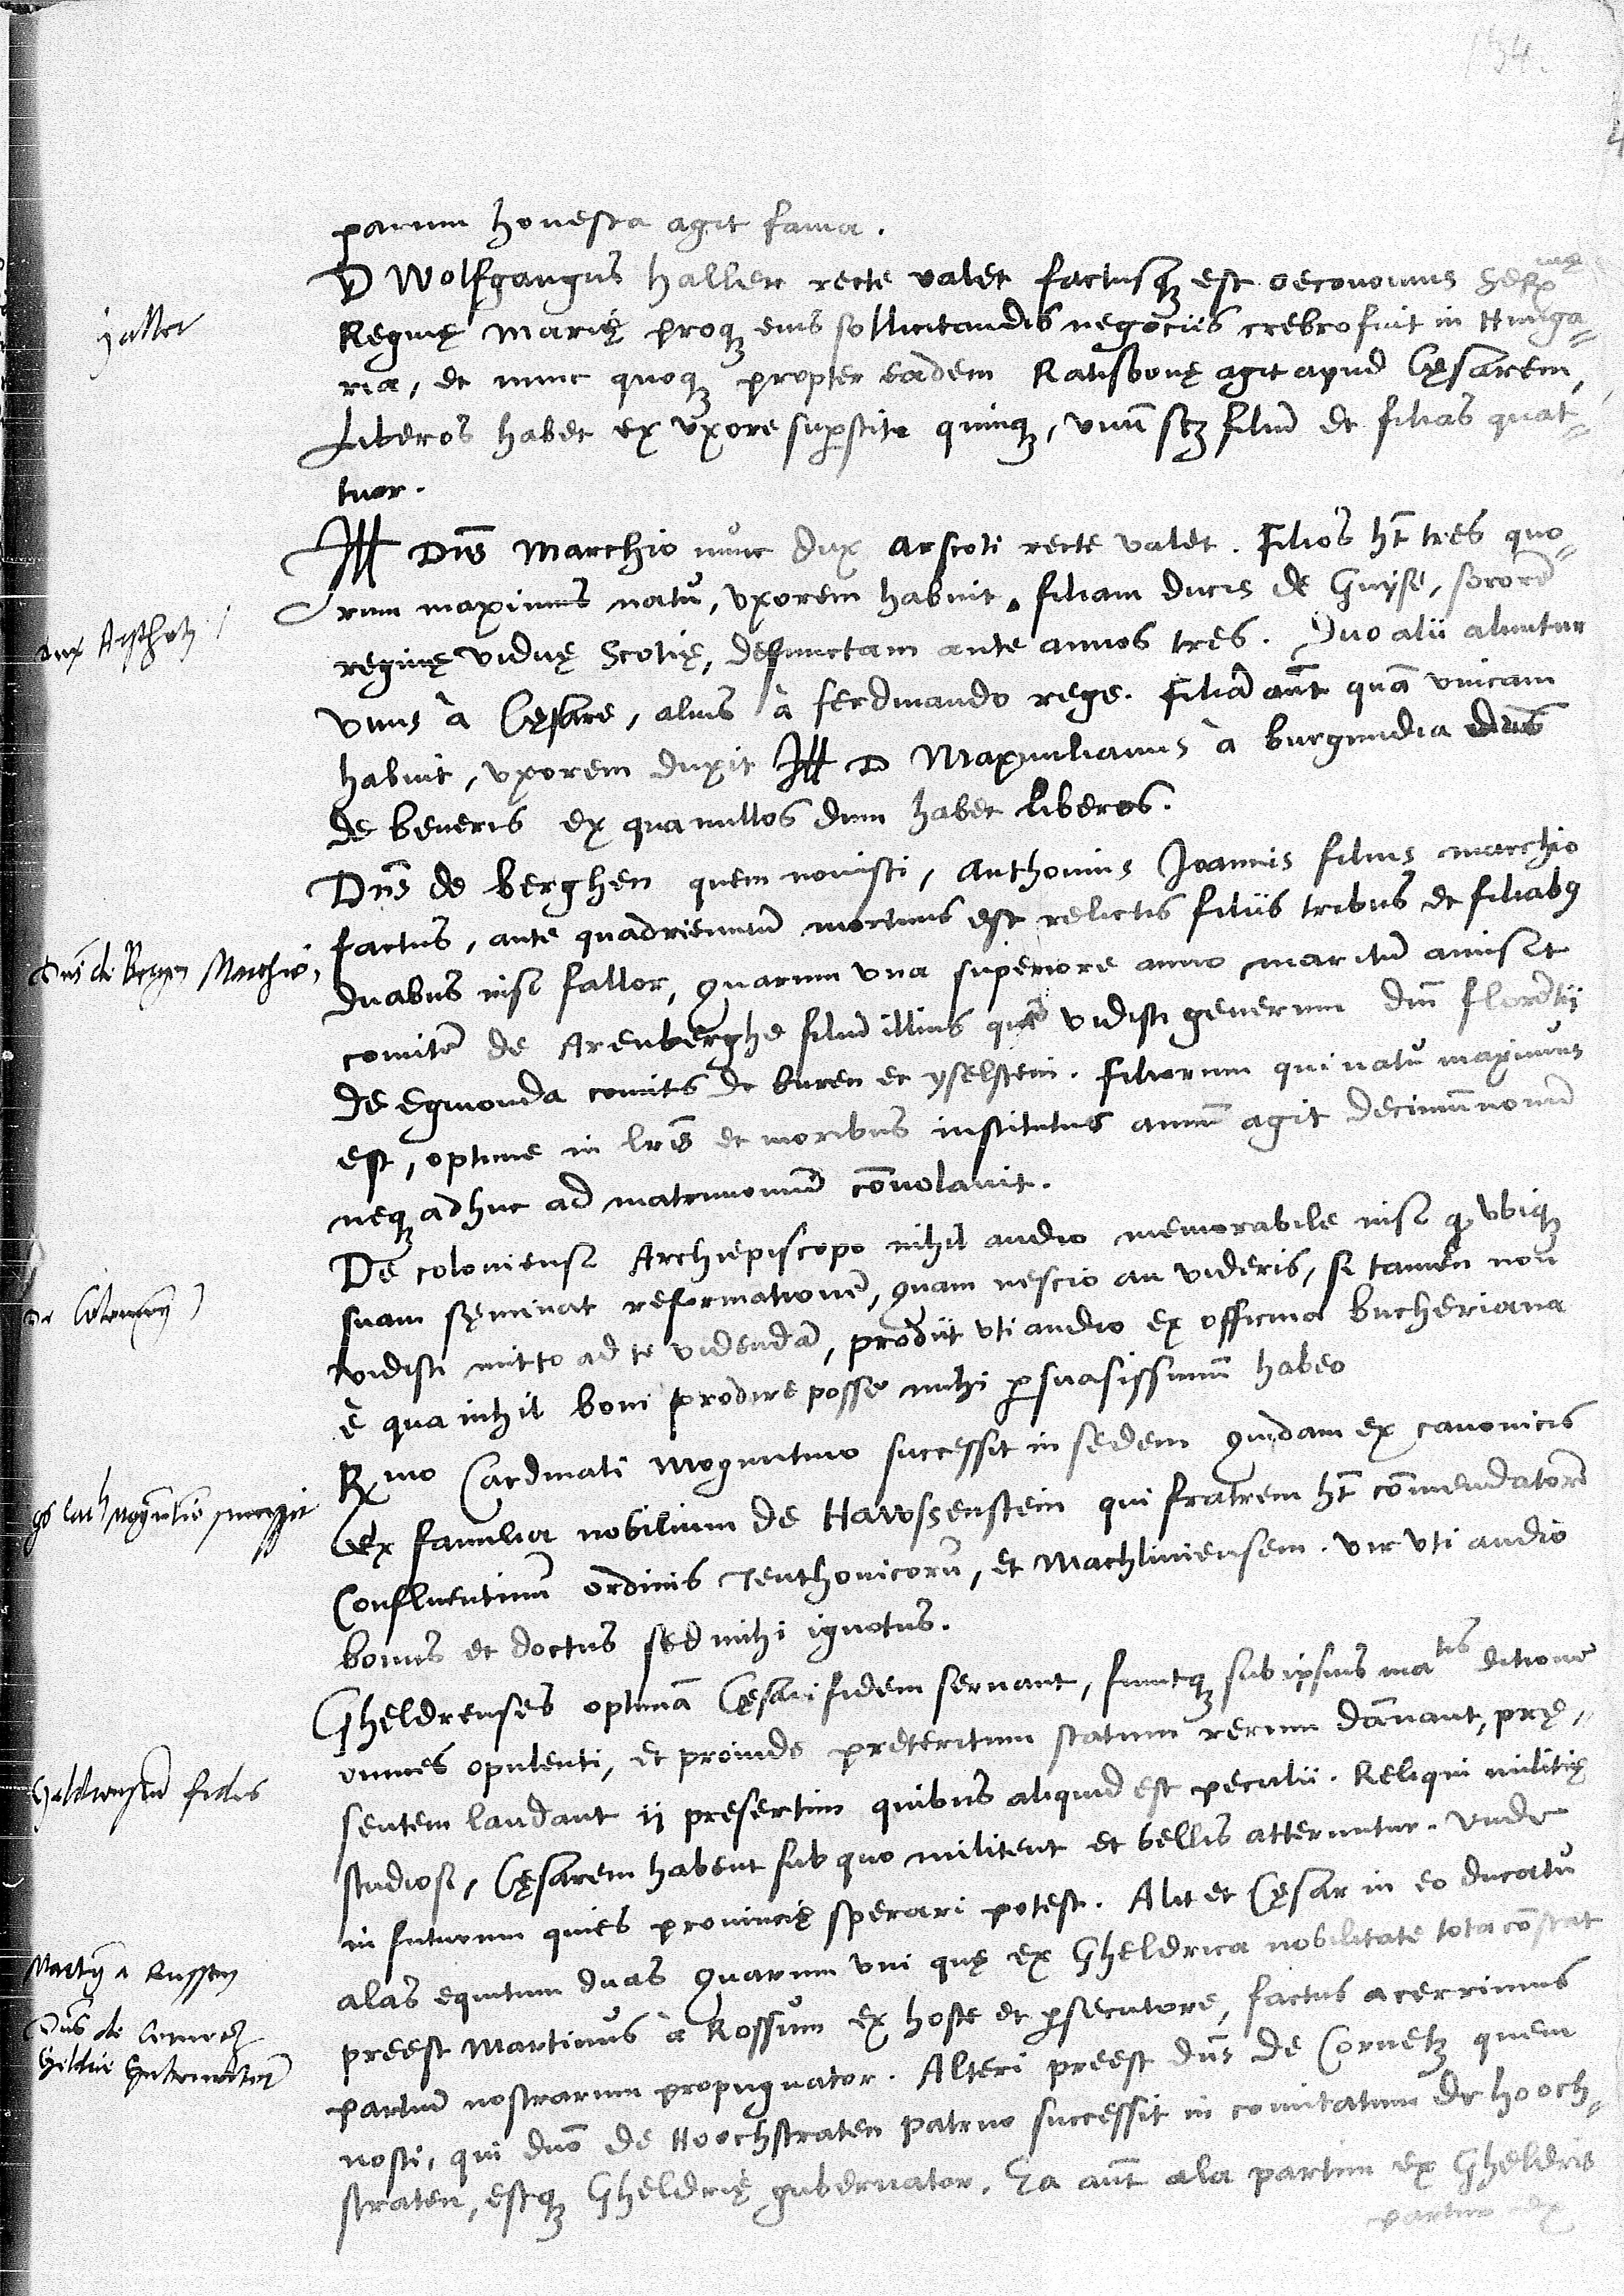 154.
parum honesta agit fama.
Haller
D Wolfgangus Haller recte valet factusq; est oeconomus Serx
Reginę Marię proq; eius sollicitandis negociis crebro fuit in Hunga=
ria, et nunc quoq; propter eadem Ratisbonę agit apud Cęsarem,
Liberos habet ex uxore sup̱stite quinq;, unū scz filiū et filias quat=
tuor.
Ill Dn̄s Marchio nunc dux Arscoti recte valet. Filios ht̄ tres quo=
rum maximus natu, uxorem habuit filiam ducis de Guyse, sororē
dux Arschotz
reginę viduę Scotię, defunctam ante annos tres. Duo alii aluntur
unus à Cęsare, alius à ferdinando rege. Filiā aūt quā unicam
habuit, uxorem duxit Ill D Maximilianus à burgundia dn̄s
de beueris ex qua nullos dum habet liberos.
Dn̄s de Berghen quem nouisti, Anthonius Joannis filius marchio
factus, ante quadrienniū mortuus est relictis filiis tribus et filiab9
Dn̄s de Bergen Marchio,
duabus nisi fallor, quarum una superiore anno maritū amisit
comitē de Arenberghe filiū illius quē vidisti generum dn̄i florētij
de Egmonda comitis de buren et yselstein. Filiorum qui natu maximus
est, optime in lr̄is et moribus institutus annū agit decimūnonū
neq; adhuc ad matrimoniū conuolauit.
De coloniensi Archiepiscopo nihil audio memorabile nisi q ubiq;
De Coloniensi
suam seminat reformationē, quam nescio an videris, si tamen non
vidisti mitto ad te videndā, prodiit uti audio ex officina bucheriana
è qua nihil boni prodire posse mihi p̱suasissimū habeo
Rx mo Cardinali Moguntino successit in sedem quidam ex canonicis
ex familia nobilium de Hawssenstein qui fratrem ht̄ commendatorē
Confluentinū ordinis Teuthonicorū, et Machliniensem. vir uti audio
bonus et doctus sed mihi ignotus.
Gheldrenses optimā Cęsari fidem seruant, suntq; sub ipsius ma tis ditione
omnes opulenti, et proinde preteritum statum rerum dānant, prę=
Gheldrensiū fides
sentem laudant ij presertim quibus aliquid est peculii. Reliqui militię
studiosi, Cęsarem habent sub quo militent et bellis atteruntur. Unde
in futurum quies prouincię sperari potest. Alit et Cęsar in eo ducatu
Martin a Russem
alas equitum duas quarum uni quę ex Gheldrica nobilitate tota cōstat
preest Martinus à Rossum ex hoste et p̱secutore, factus acerrimus
Dn̄s de Cornetz
Geldrie Gubernator
partiū nostrarum propugnator. Alteri preest dn̄s de Cornetz quem
nosti, qui dn̄o de Hoochstraten patruo successit in comitatum de Hooch=
straten, estq; Gheldrię gubernator. Ea aūt ala partim ex Gheldris
partim ex